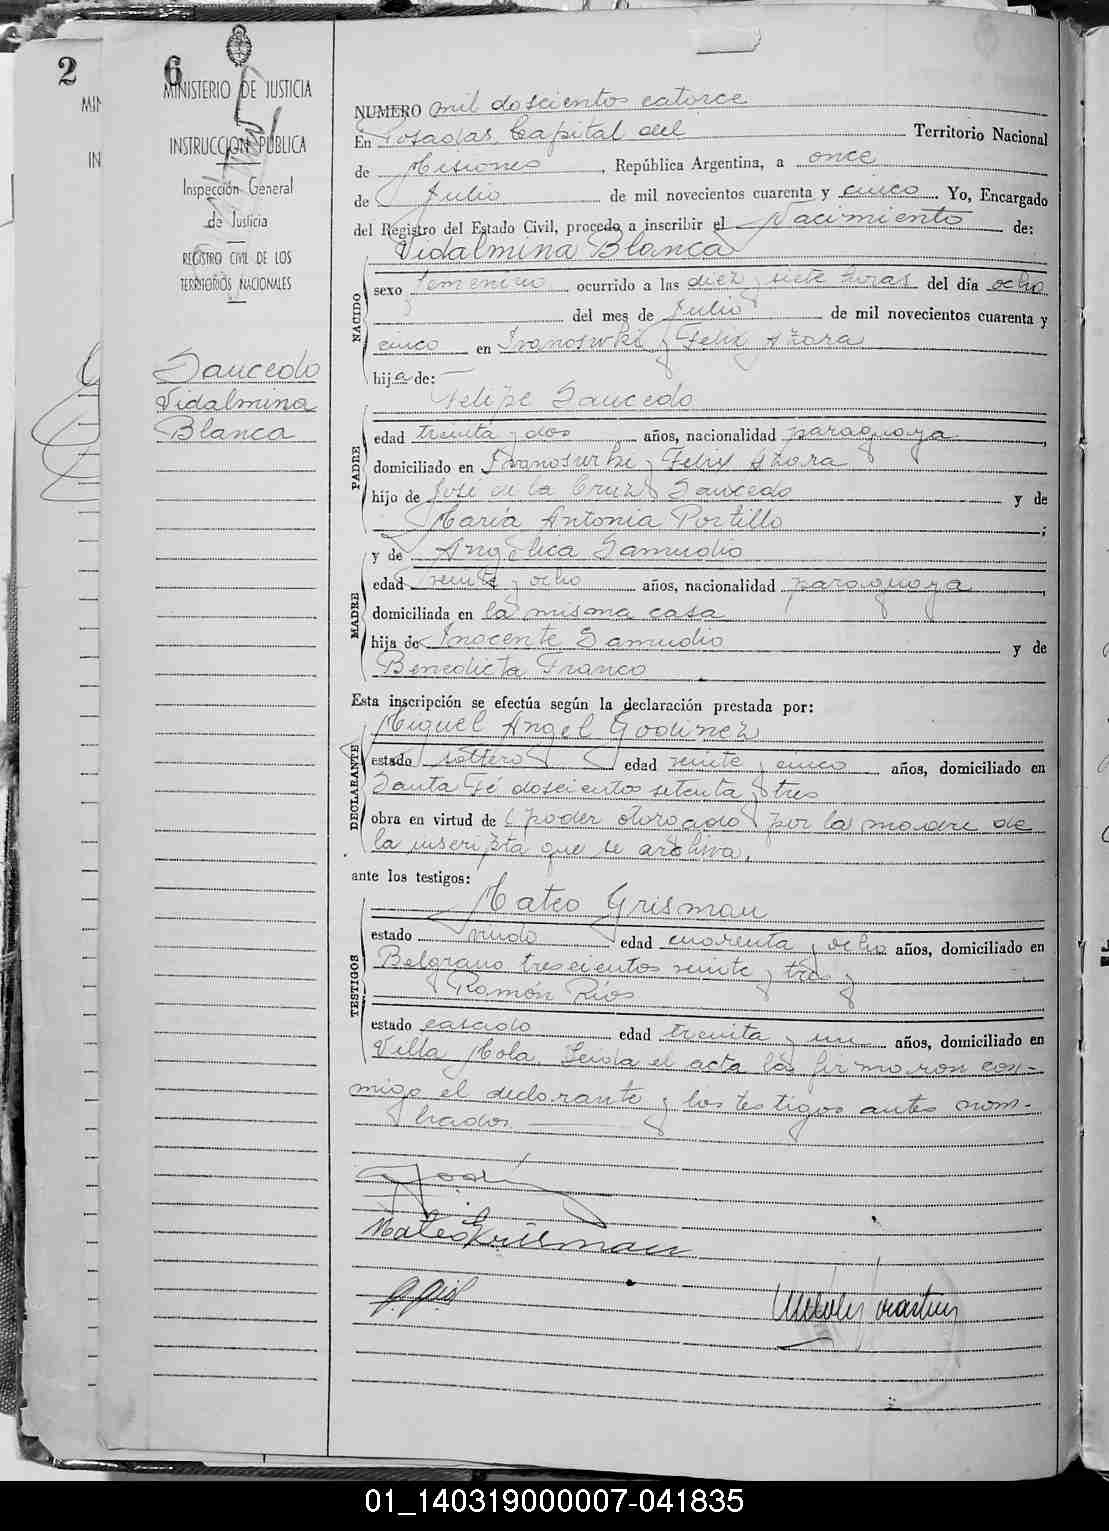 2
6
MINISTERIO DE JUSTICIA
INSTRUCCION PUBLICA
Inspección General
de Justicia
REGISTRO CIVIL DE LOS
TERRITORIOS NACIONALES
MIN
IN
Saucedo
Vidalmina
Blanca
NUMERO mil doscientos catorce
En Posadas, Capital del Territorio Nacional
de Misiones, República Argentina, a once
de Julio de mil novecientos cuarenta y cinco. Yo, Encargado
del Registro del Estado Civil, procedo a inscribir el Nacimiento de:
Vidalmina Blanca
NACIDO
sexo femenino ocurrido a las diez y siete horas del día ocho
del mes de Julio de mil novecientos cuarenta y
cinco en Ivanoswki y Felix Azara
hija de:
Felipe Saucedo
PADRE
edad treinta y dos años, nacionalidad paraguaya,
domiciliado en Ivanoswki y Felix Azara
hijo de José de la Cruz Saucedo y de
María Antonia Portillo;
y de Angélica Samudio
MADRE
edad veinte y ocho años, nacionalidad paraguaya,
domiciliada en la misma casa
hija de Inocente Samudio y de
Benedicta Franco
Esta inscripción se efectúa según la declaración prestada por:
Miguel Angel Godinez
DECLARANTE
estado soltero edad veinte y cinco años, domiciliado en
Santa Fé doscientos setenta y tres
obra en virtud de poder otorgado por la madre de
la inscripta que se archiva.
ante los testigos:
Mateo Grisman
TESTIGOS
estado viudo edad cuarenta y ocho años, domiciliado en
Belgrano trescientos veinte y tres y
Ramón Ríos
estado casado edad treinta y un años, domiciliado en
Villa Mola. Leída el acta la firmaron con-
migo el declarante y los testigos antes nom-
brados
Mateo Grisman
01_140319000007-041835